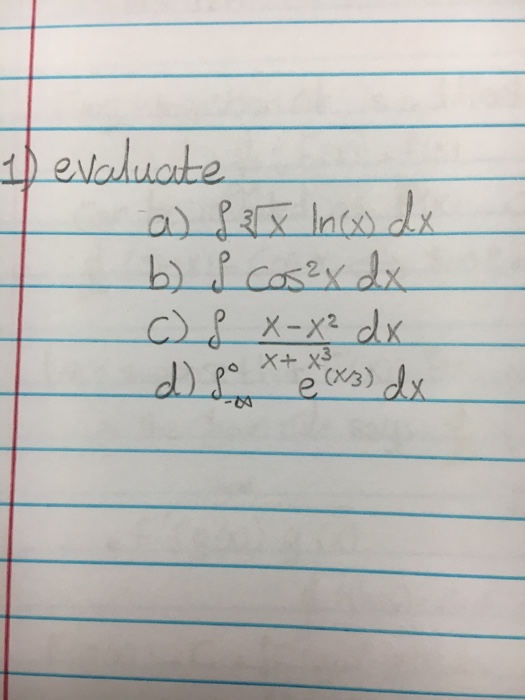 1) evaluate
a) ∫ ∛x ln(x) dx
b) ∫ cos²x dx
c) ∫ x-x² / x+x³ dx
d) ∫₋∞⁰ e^(x/3) dx